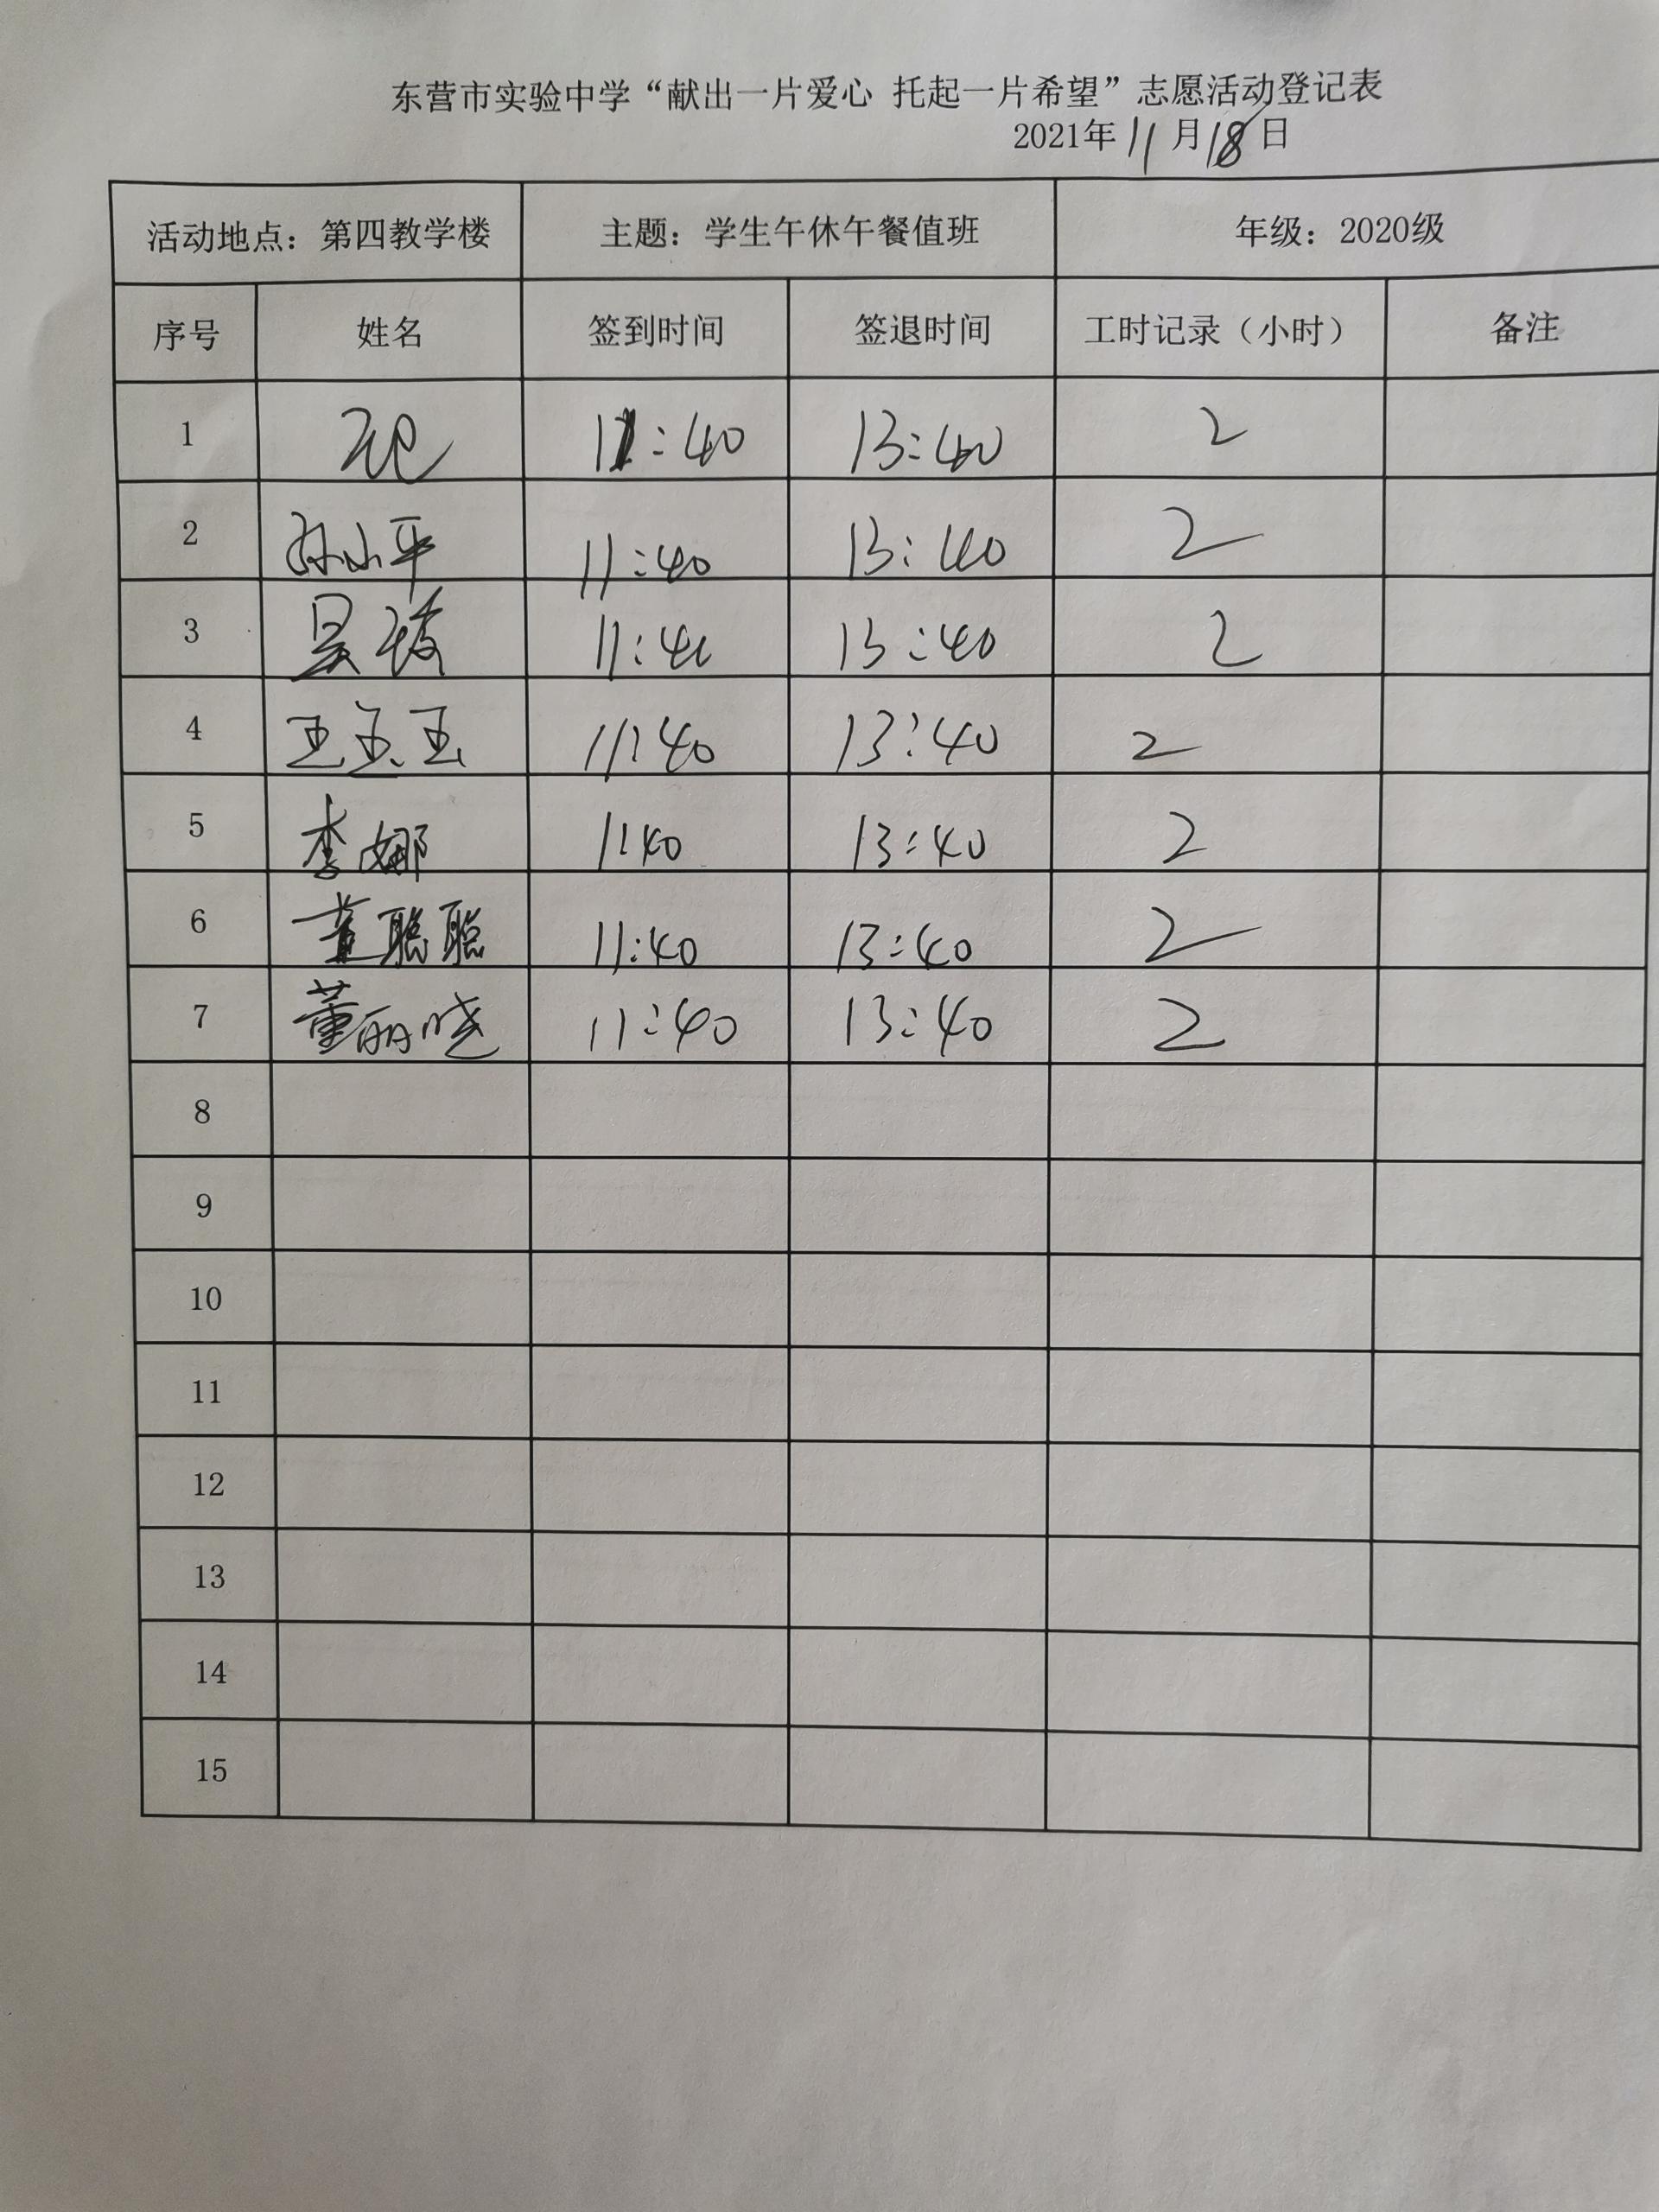 东营市实验中学“献出一片爱心 托起一片希望”志愿活动登记表
2021年11月18日
活动地点：第四教学楼 主题：学生午休午餐值班 年级：2020级
序号 姓名 签到时间 签退时间 工时记录（小时） 备注
1 11:40 13:40 2
2 孙小平 11:40 13:40 2
3 吴 11:40 13:40 2
4 王玉玉 11:40 13:40 2
5 李娜 11:40 13:40 2
6 董聪聪 11:40 13:40 2
7 董丽晓 11:40 13:40 2
8
9
10
11
12
13
14
15